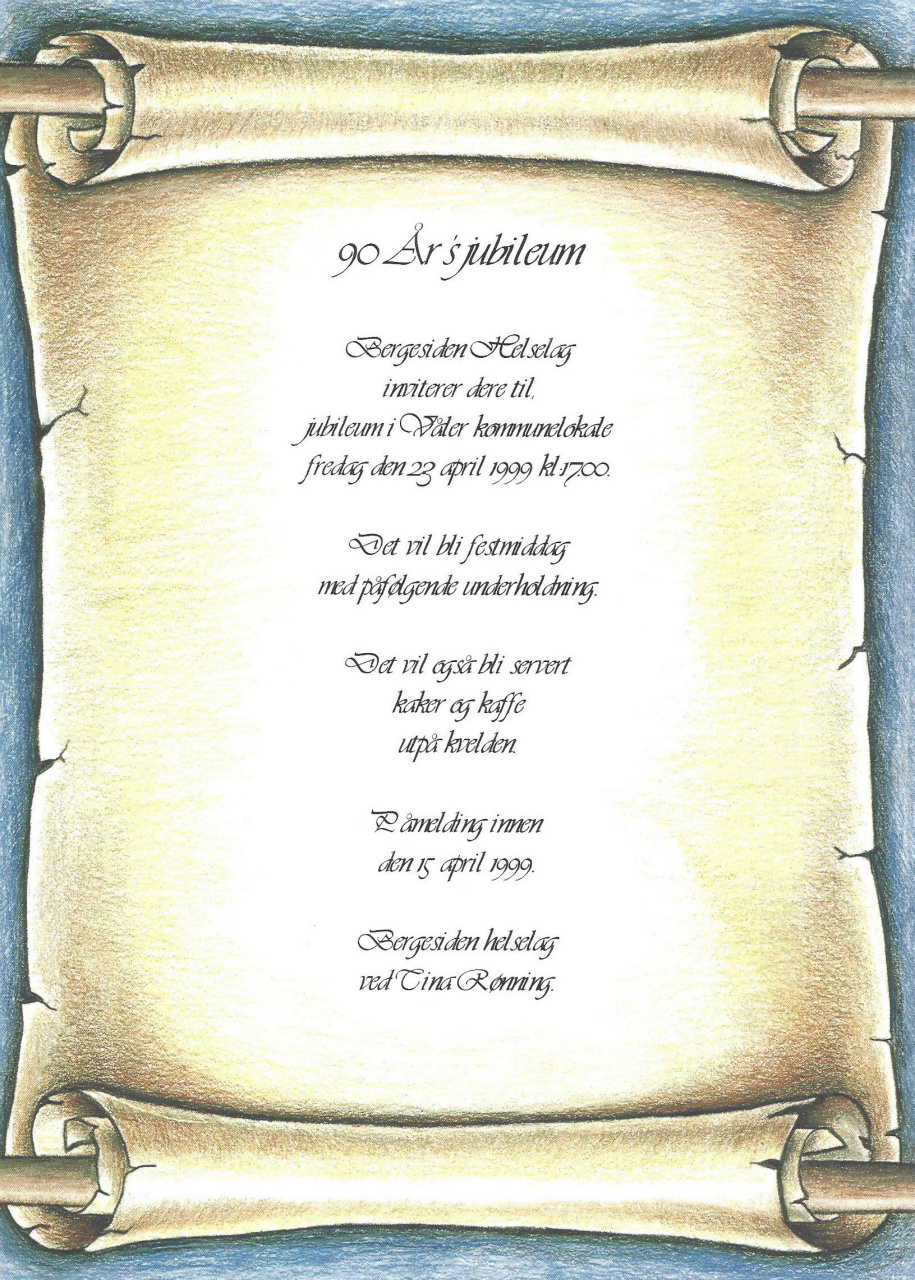 90 År's jubileum
Bergesiden Helselag
inviterer dere til,
jubileum i Våler kommunelokale
fredag den 23 april 1999 kl.17.00.
Det vil bli festmiddag
med påfølgende underholdning.
Det vil også bli servert
kaker og kaffe
utpå kvelden.
Påmelding innen
den 15 april 1999.
Bergesiden helselag
ved Tina Rønning.